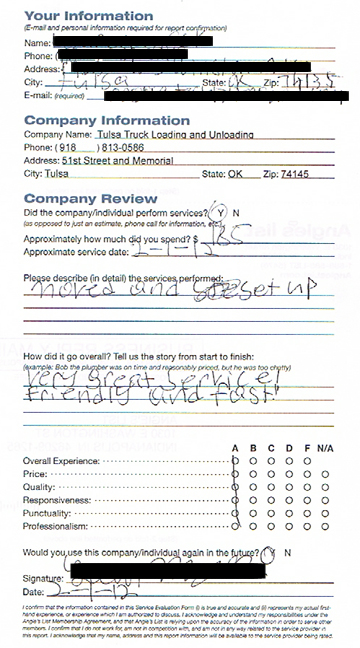 Your Information
(E-mail and personal information required for report confirmation)
Name:
Phone: (
Address:
City: Tulsa State: OK Zip: 74135
E-mail: (required)
Company Information
Company Name: Tulsa Truck Loading and Unloading
Phone: ( 918 ) 813-0586
Address: 51st Street and Memorial
City: Tulsa State: OK Zip: 74145
Company Review
Did the company/individual perform services? Y N
(as opposed to just an estimate, phone call for information, etc.)
Approximately how much did you spend? $ 185
Approximate service date: 2-1-12
Please describe (in detail) the services performed:
moved and set up
How did it go overall? Tell us the story from start to finish:
(example: Bob the plumber was on time and reasonably priced, but he was too chatty)
Very great service!
Friendly and fast!
A B C D F N/A
Overall Experience:
Price:
Quality:
Responsiveness:
Punctuality:
Professionalism:
Would you use this company/individual again in the future? Y N
Signature:
Date: 2-1-12
I confirm that the information contained in this Service Evaluation Form (i) is true and accurate and (ii) represents my actual first-
hand experience, or experience which I am authorized to discuss. I acknowledge and understand my responsibilities under the
Angie's List Membership Agreement, and that Angie's List is relying upon the accuracy of the information in order to serve other
members. I confirm that I do not work for, am not in competition with, and am not in any way related to the service provider in
this report. I acknowledge that my name, address and this report information will be available to the service provider being rated.